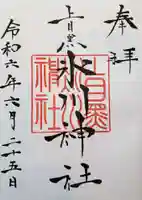 奉拝
上目黒氷川神社
上目黒氷川神社
令和六年六月二十五日